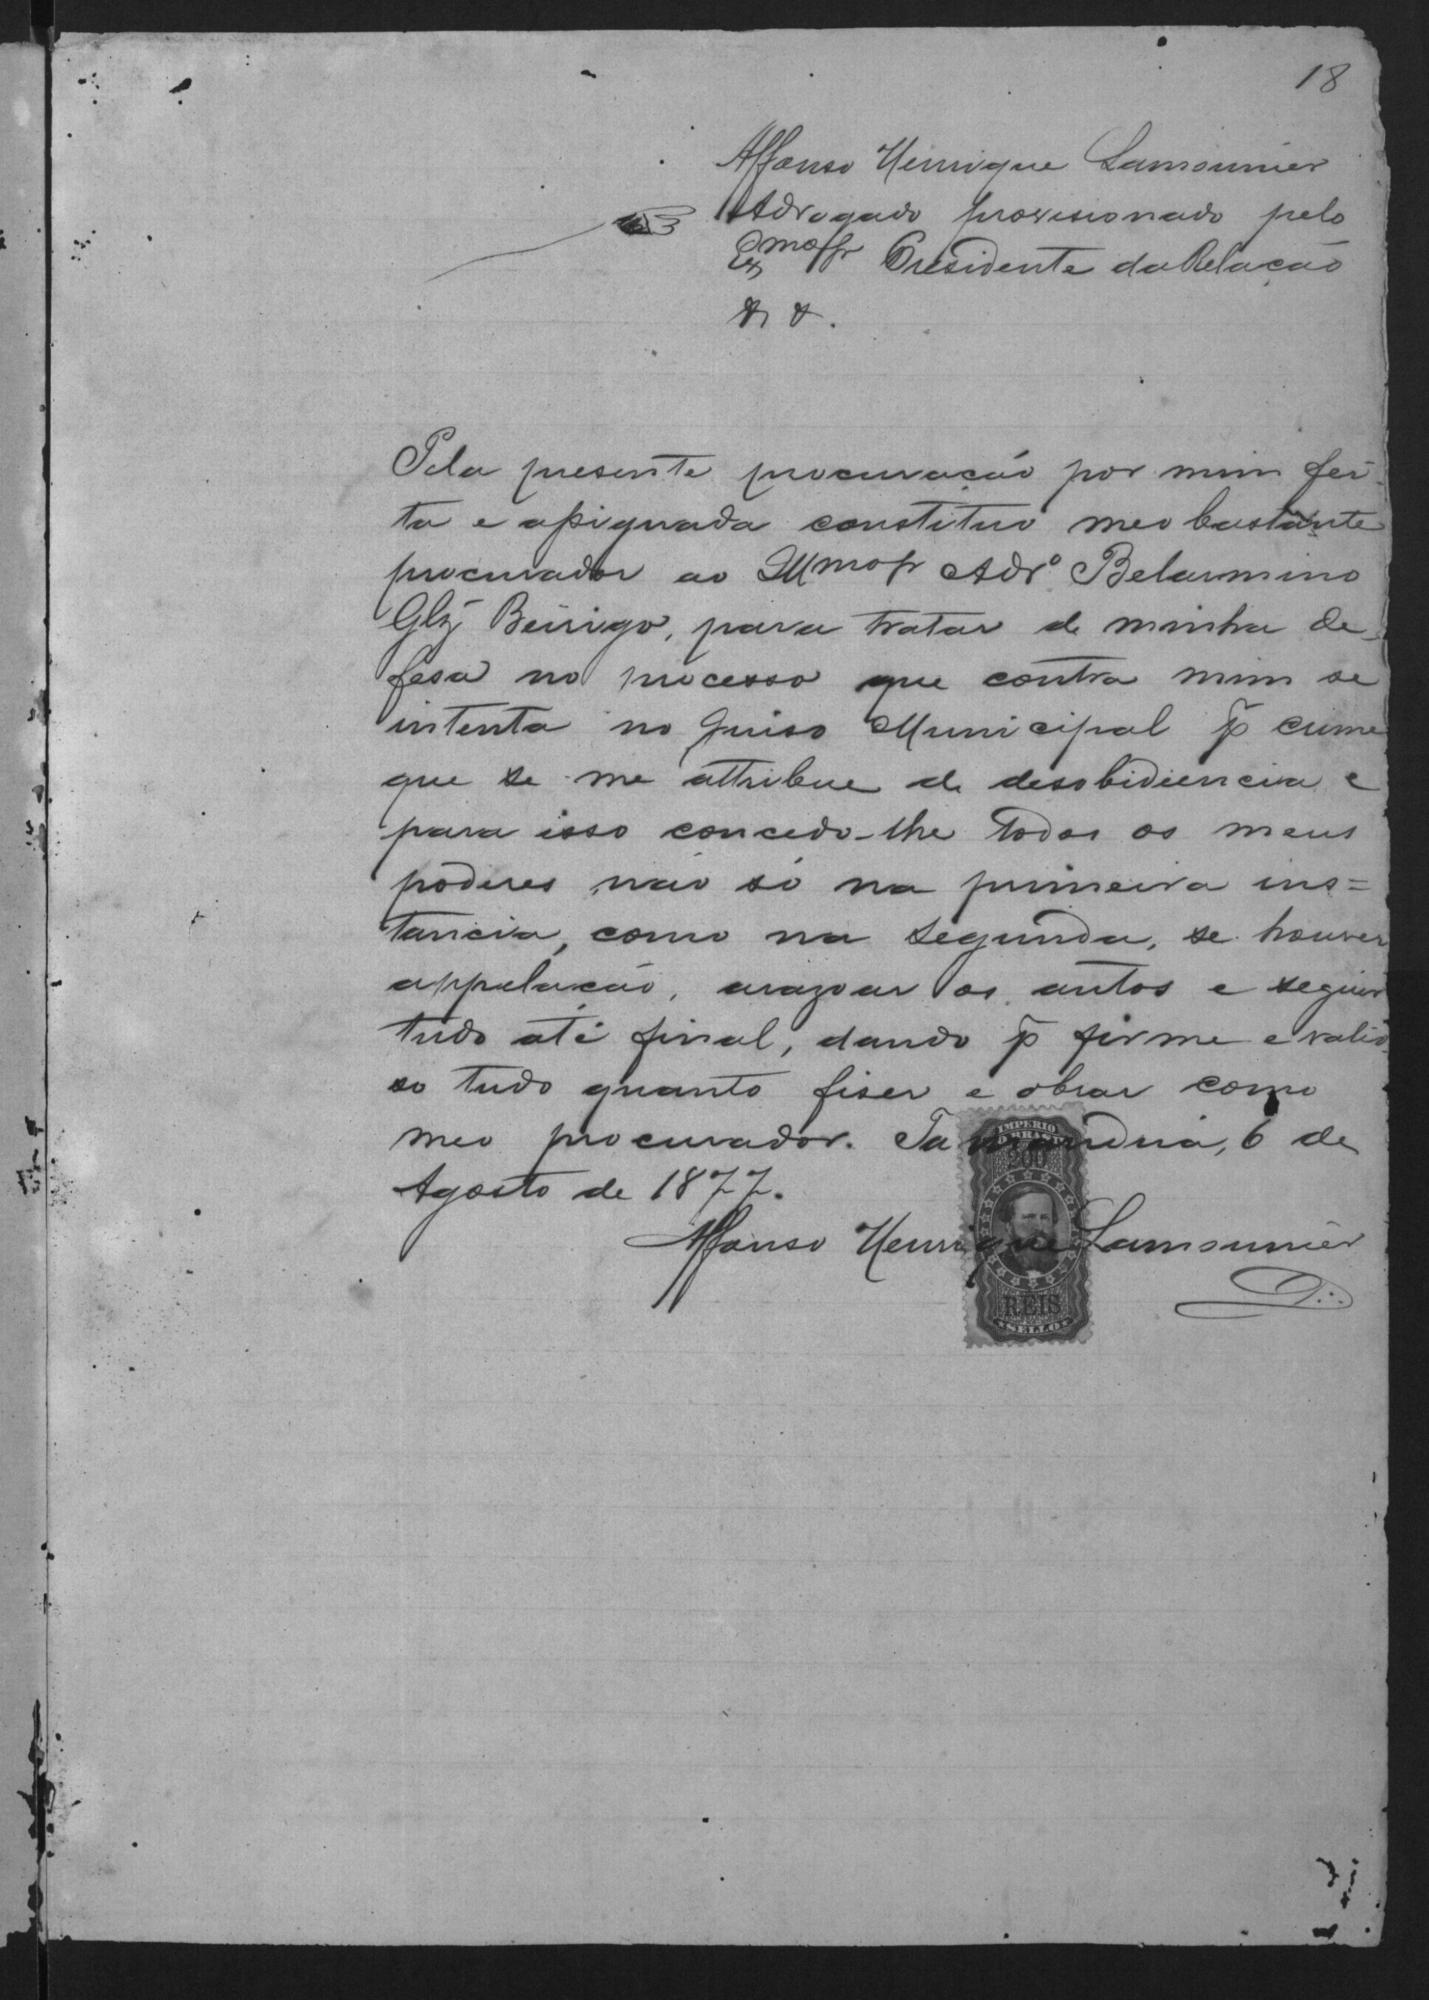 18
Affonso Henrique Lamounier
Advogado provisionado pelo
Exmo Sr Presidente da Relação
& &.
Pela presente procuração por mim fei-
ta e assignada constituo meo bastante
procurador ao Illmo Sr Advo Belarmino
Glz' , para tratar de minha de-
fesa no processo que contra mim se
intenta no Juiso Municipal p crime
que se me attribue de desobidiencia e
para isso concedo-lhe todos os meus
poderes não só na primeira ins=
tancia, como na segunda, se houver
appelação, arazoar os autos e seguir
tudo até final, dando p firme e valio
so tudo quanto fiser e obrar como
meo procurador. Tamanduá, 6 de
Agosto de 1877.
Affonso Henrique Lamounier
IMPERIO
DO BRASIL
200
REIS
SELLO